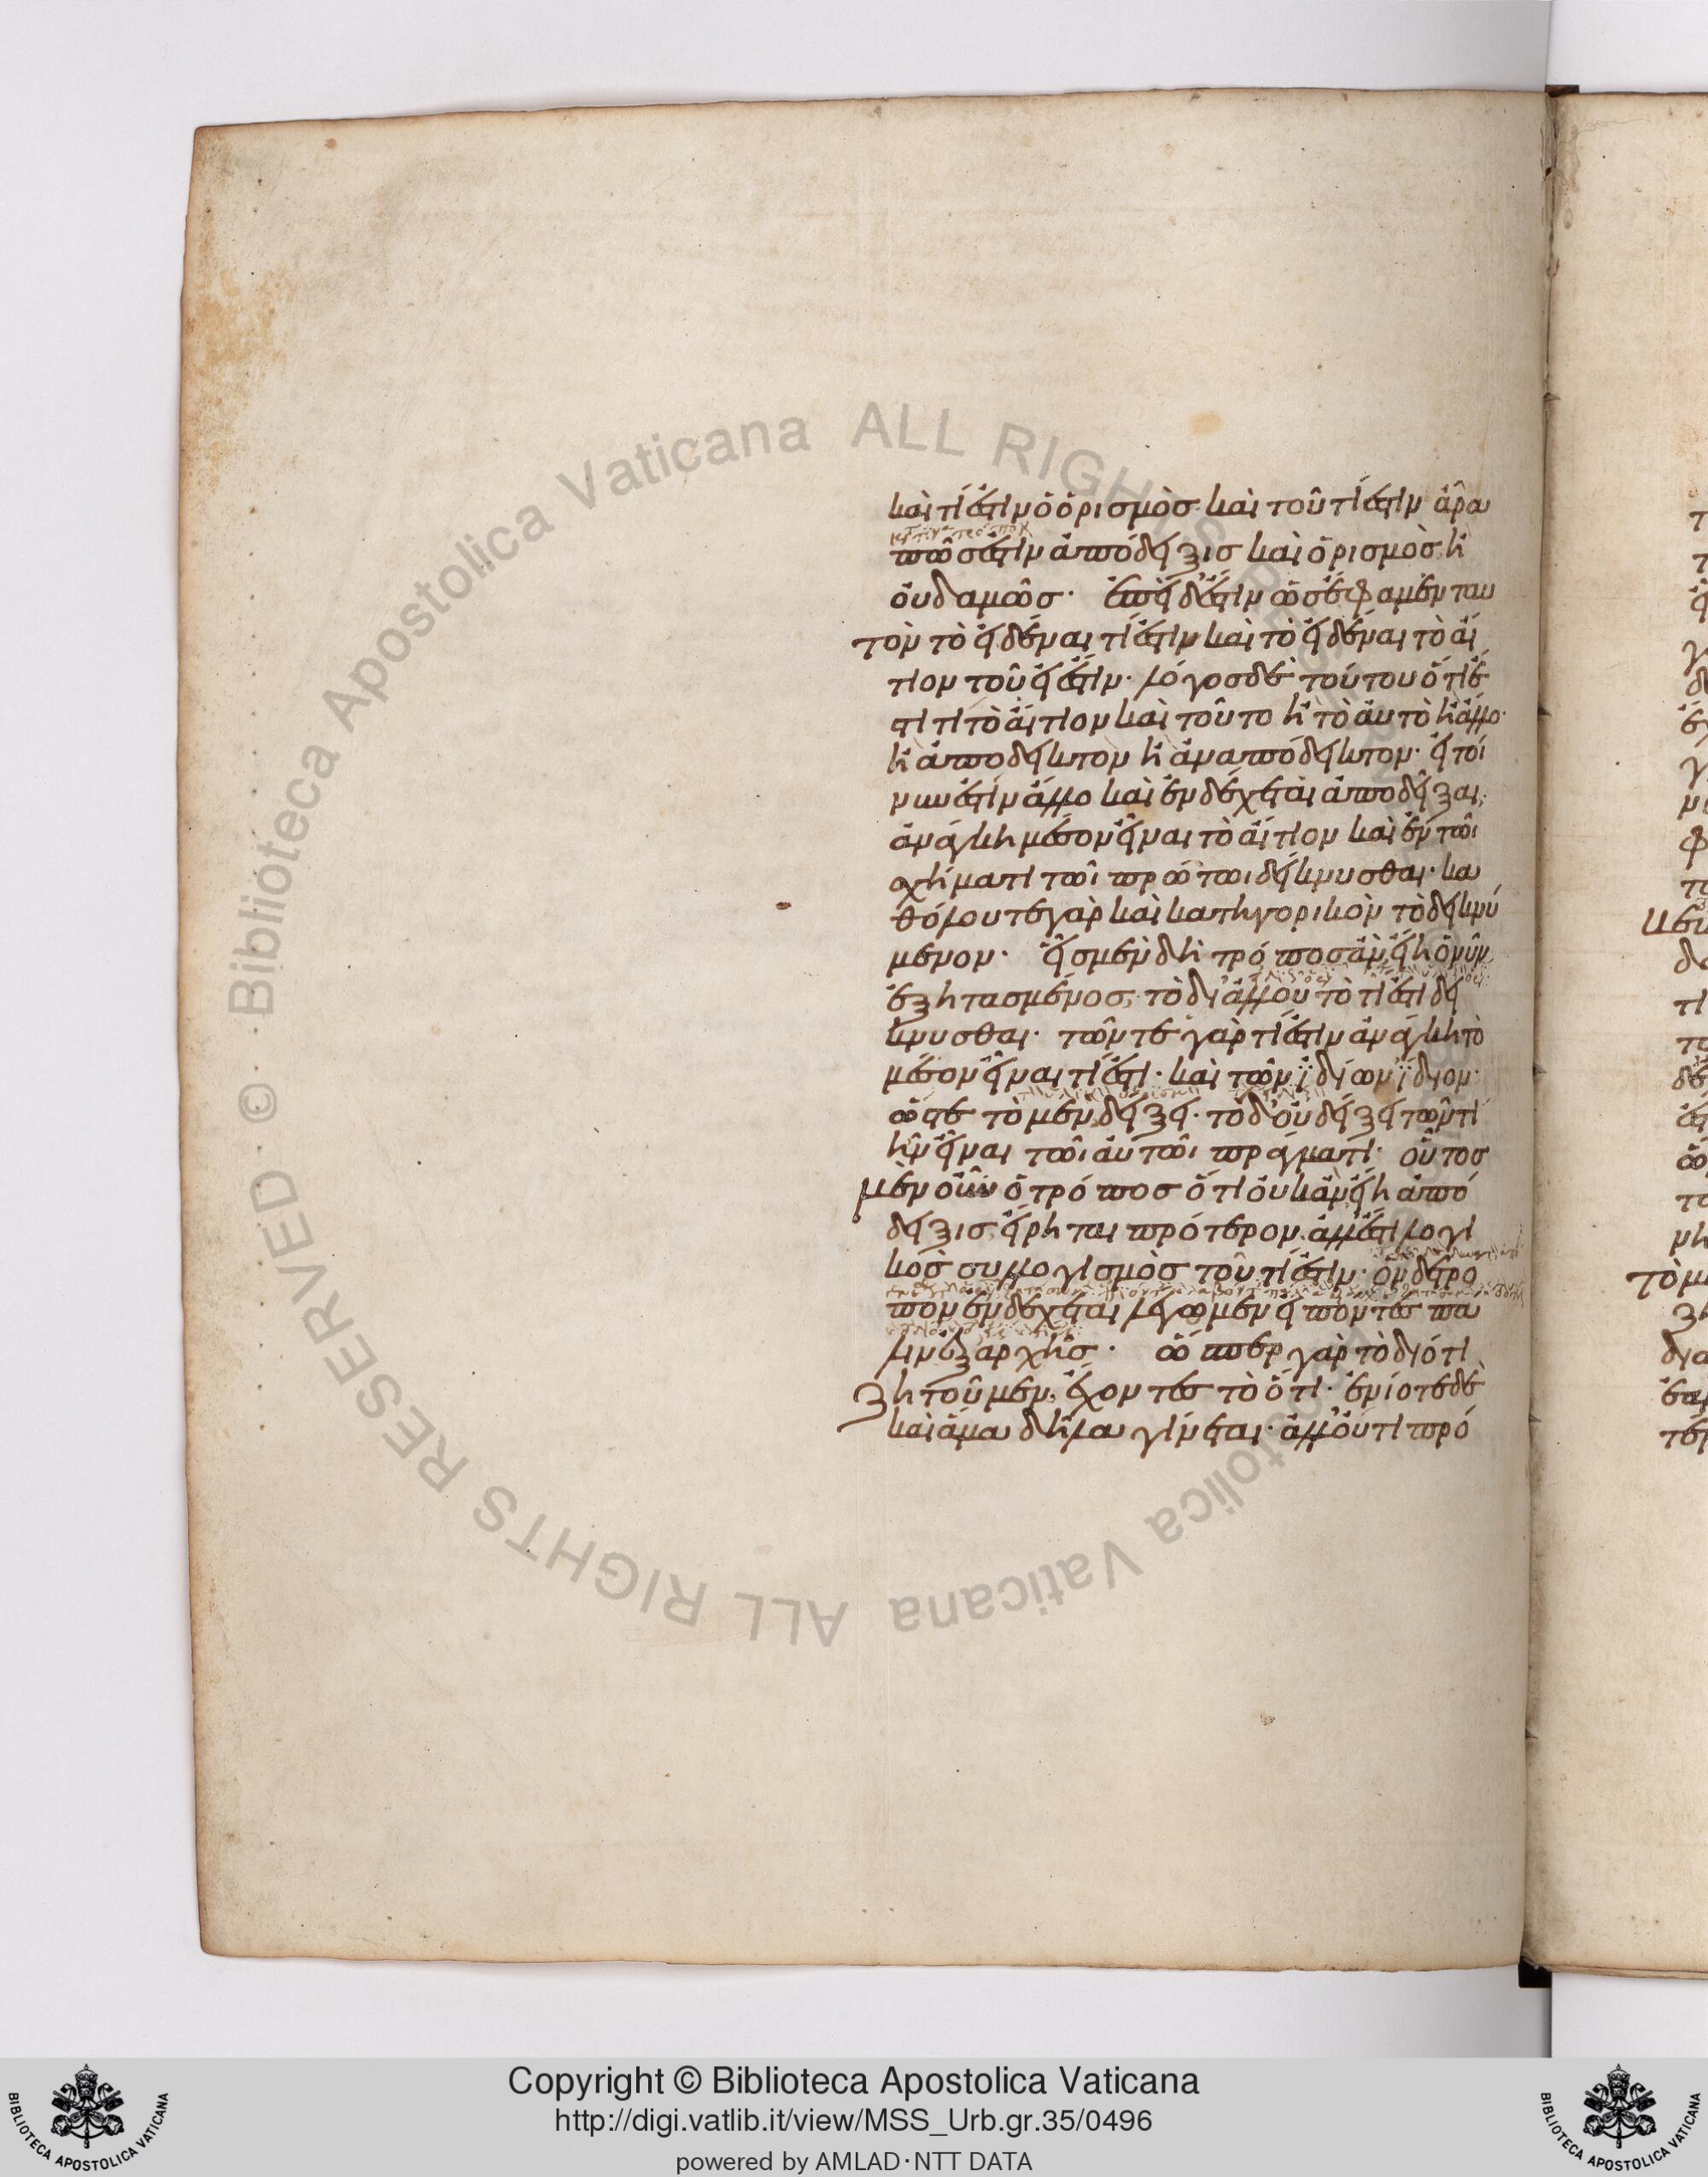 καὶ τί ἐστιν ὁ ὁρισμὸς καὶ τοῦ τί ἐστιν ἆρα
πώς ἐστιν ἀπόδειξις καὶ ὁρισμὸς ἢ
οὐδαμῶς· ἐπεὶ δ' ἐστιν ὡς ἔφαμεν ταυ
τὸν τὸ εἰδέναι τί ἐστιν καὶ τὸ εἰδέναι τὸ αἴ
τιον τοῦ εἰ ἔστιν· λόγος δὲ τούτου ὅτι ἔσ
τι τι τὸ αἴτιον καὶ τοῦτο ἢ τὸ αὐτὸ ἢ ἄλλο·
ἢ ἀποδεικτὸν ἢ ἀναπόδεικτον· εἰ τοί
νυν ἐστὶν ἄλλο καὶ ἐνδέχεται ἀποδεῖξαι,
ἀνάγκη μέσον εἶναι τὸ αἴτιον καὶ ἐν τῶι
σχήματι τῶι πρώτωι δείκνυσθαι· κα
θόλου τε γὰρ καὶ κατηγορικὸν τὸ δεικνύ
μενον· εἷς μὲν δὴ τρόπος ἂν εἴη ὁ νῦν
ἐξητασμένος, τὸ δι' ἄλλου τὸ τί ἐστι δεί
κνυσθαι· τῶν τε γὰρ τί ἐστιν ἀνάγκη τὸ
μέσον εἶναι τί ἐστι· καὶ τῶν ἰδίων ἴδιον·
ὥστε τὸ μὲν δείξει· τὸ δ' οὐ δείξει τῶν τί
ἦν εἶναι τῶι αὐτῶι πράγματι· οὗτος
μὲν οὖν ὁ τρόπος ὅτι οὐκ ἂν εἴη ἀπό
δειξις εἴρηται πρότερον. ἀλλ' ἔστι λογι
κὸς συλλογισμὸς τοῦ τί ἐστιν· ὃν δὲ τρό
πον ἐνδέχεται λέγωμεν εἰπόντες πά
λιν ἐξ ἀρχῆς· ὥσπερ γὰρ τὸ διότι
ζητοῦμεν, ἔχοντες τὸ ὅτι· ἐνίοτε δὲ
καὶ ἅμα δῆλα γίνεται· ἀλλ' οὔτι πρό
Copyright © Biblioteca Apostolica Vaticana
http://digi.vatlib.it/view/MSS_Urb.gr.35/0496
powered by AMLAD·NTT DATA
BIBLIOTECA APOSTOLICA VATICANA
BIBLIOTECA APOSTOLICA VATICANA
© Biblioteca Apostolica Vaticana ALL RIGHTS RESERVED